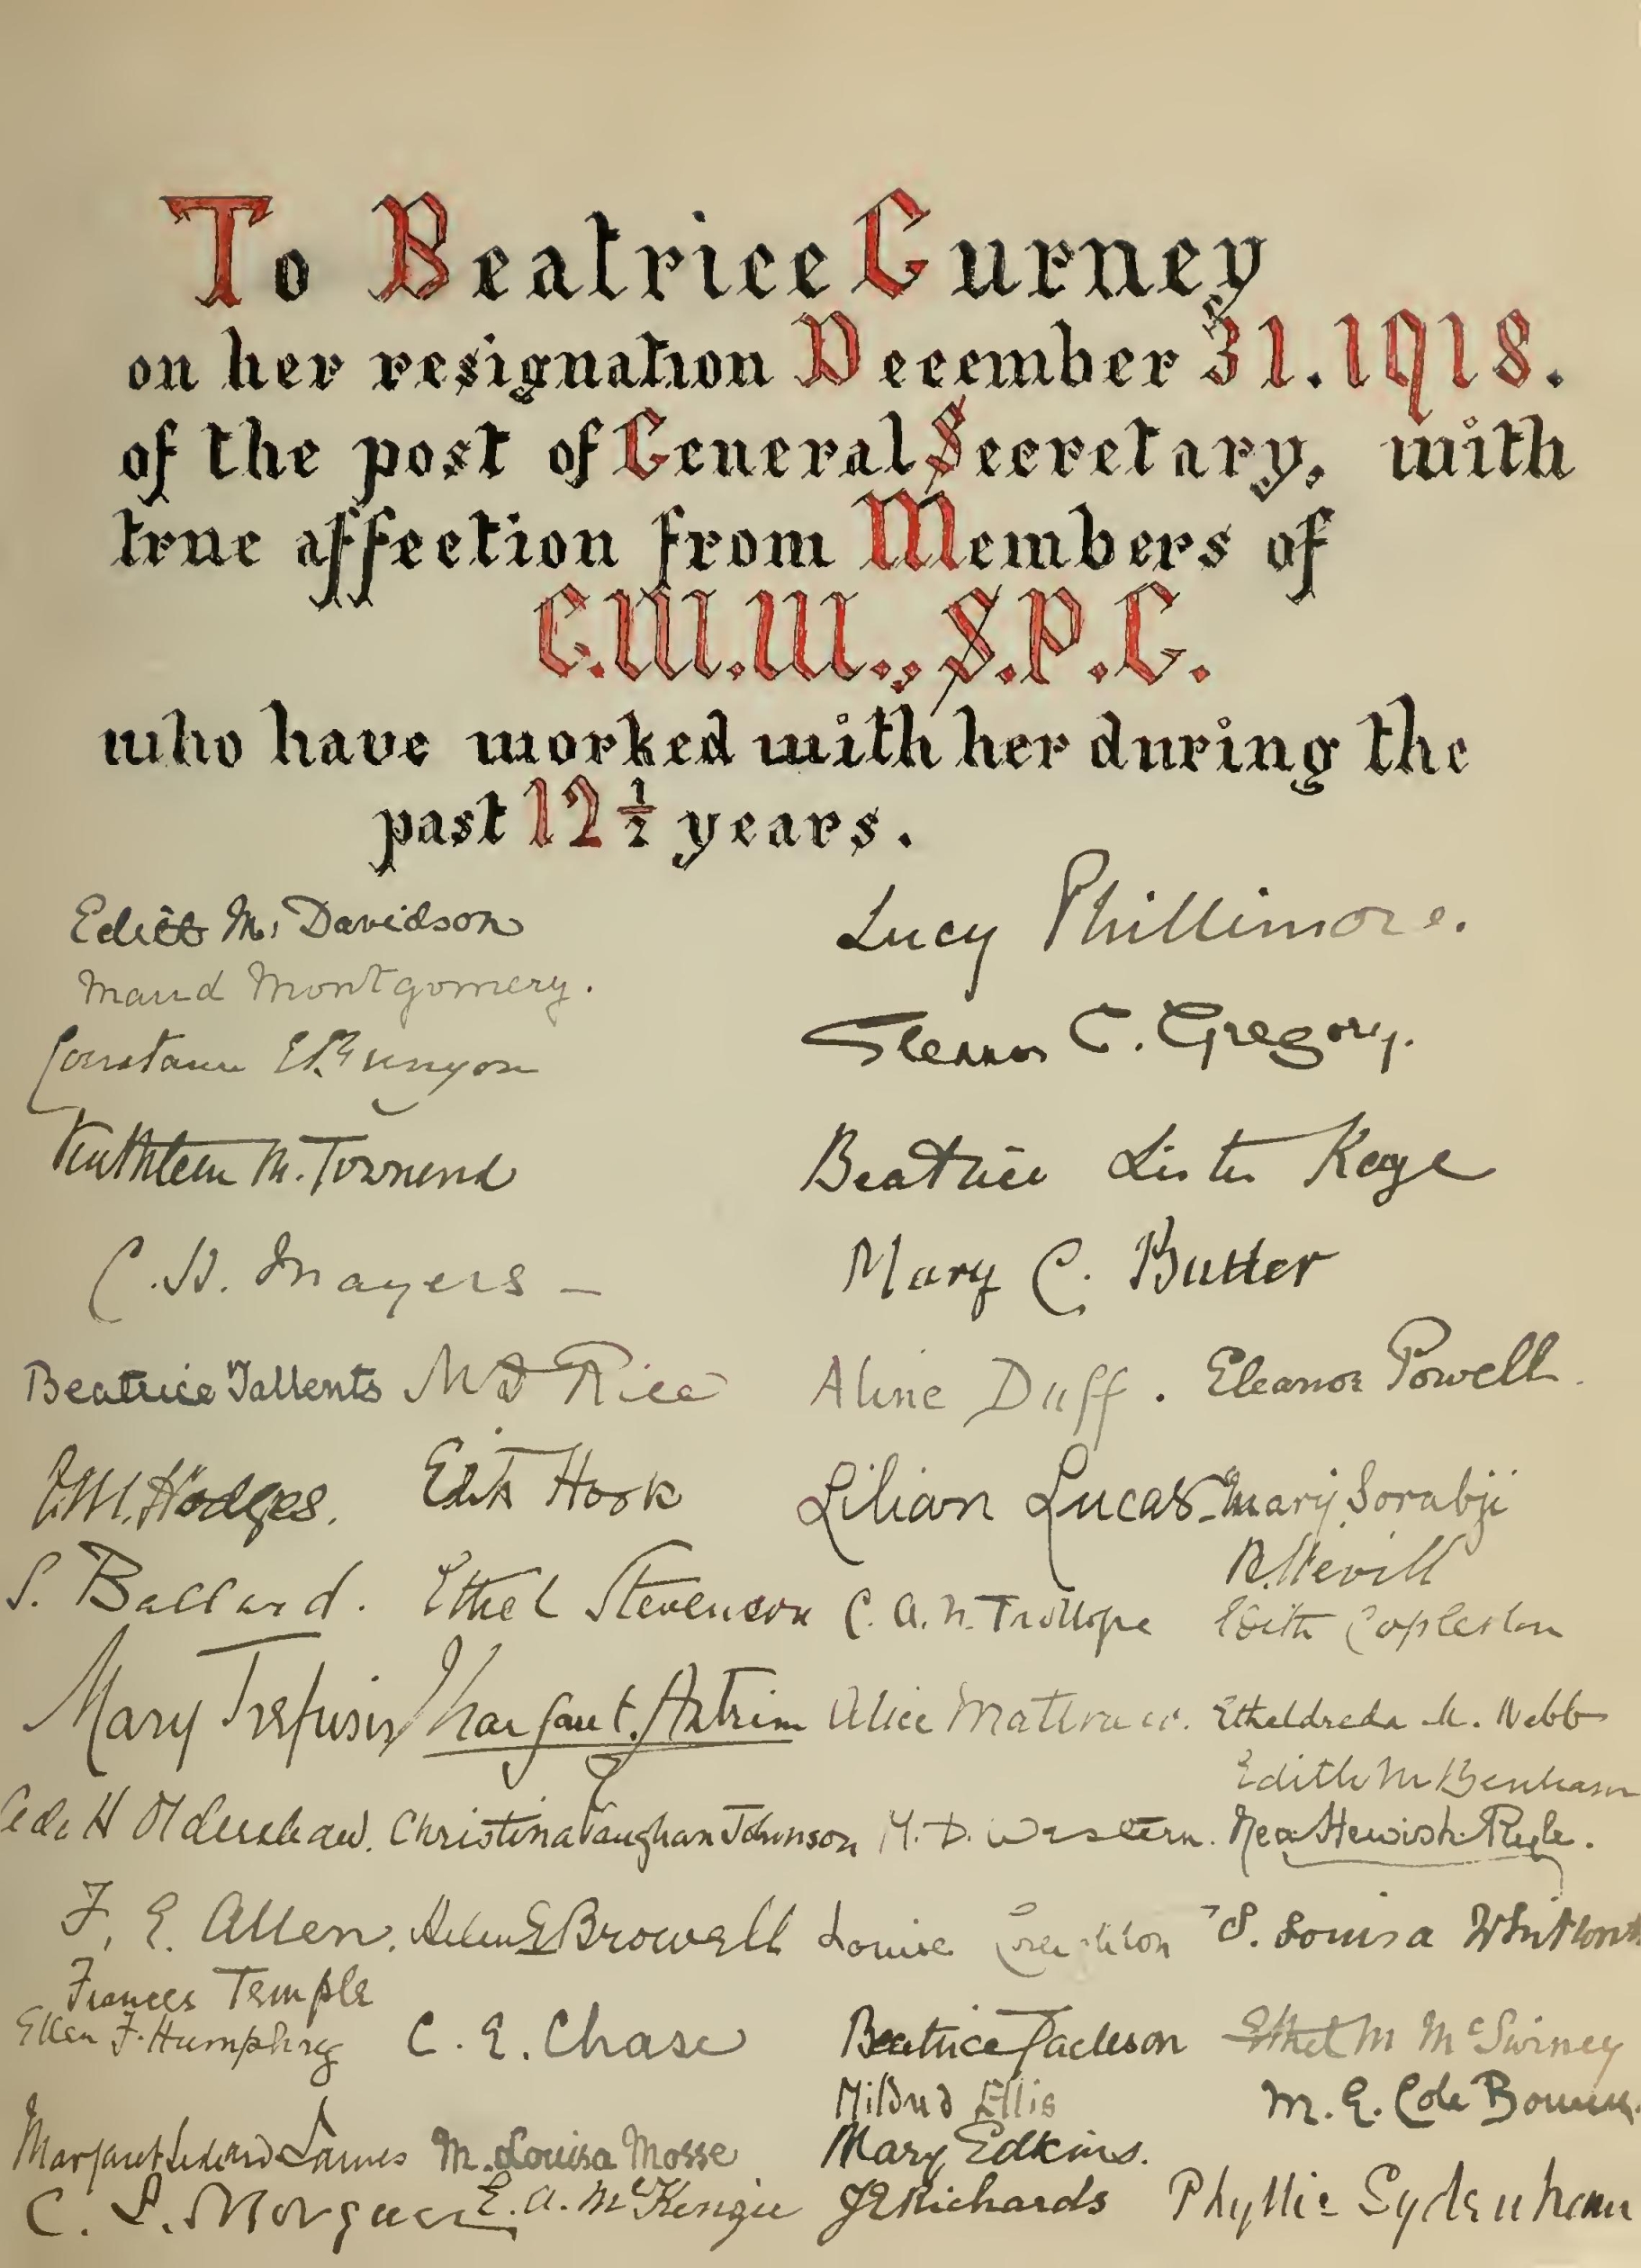 To Beatrice Gurney
on her resignation December 31.1918.
of the post of General Secretary, with
true affection from Members of
C.M.M., S.P.G.
who have worked with her during the
past 12 1/2 years.
Edith M. Davidson
Lucy Phillimore.
Maud Montgomery.
Eleanor C. Gregory.
Kathleen M. Townend
Beatrice Lister Kaye
Mary C. Butter
Beatrice Tallents
Rice
Aline Duff.
Eleanor Powell.
Hodges.
Edith Hook
Lilian Lucas
Mary Sorabji
R. Nevill
S. Ballard.
Ethel Stevenson
C. A. N. Trollope
Edith Copleston
Mary Trefusis
Margaret Antrim
Alice
Etheldreda M. Webb
Edith M Benham
Christina Vaughan Johnson
M. D. Western.
Hewish
F. E. Allen.
Helen E Browell
Louise Creighton
S. Louisa
Frances Temple
Ellen F. Humphry
C. E. Chase
Beatrice Jackson
Ethel M McSwiney
Mildred Ellis
M. E. Cole
Margaret
M. Louisa Mosse
Mary Edkins.
C.
E. A. McKenzie
Richards
Phyllis Sydenham